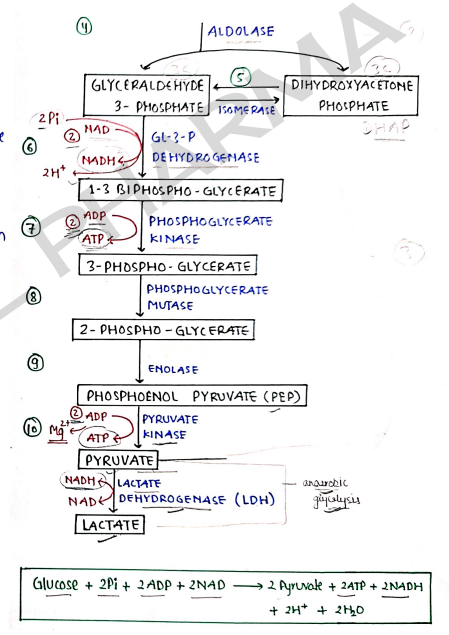 4
ALDOLASE
3C
3C
GLYCERALDEHYDE
3-PHOSPHATE
5
ISOMERASE
DIHYDROXYACETONE
PHOSPHATE
DHAP
2Pi
6
2 NAD
NADH
2H+
GL-3-P
DEHYDROGENASE
1-3 BIPHOSPHO-GLYCERATE
7
2 ADP
ATP
PHOSPHOGLYCERATE
KINASE
3-PHOSPHO-GLYCERATE
8
PHOSPHOGLYCERATE
MUTASE
2-PHOSPHO-GLYCERATE
9
ENOLASE
PHOSPHOENOL PYRUVATE (PEP)
10
Mg2+
2 ADP
ATP
PYRUVATE
KINASE
PYRUVATE
NADH
NAD
LACTATE
DEHYDROGENASE (LDH)
anaerobic
glycolysis
LACTATE
Glucose + 2Pi + 2ADP + 2NAD → 2 Pyruvate + 2ATP + 2NADH
+ 2H+ + 2H2O
PHARMA